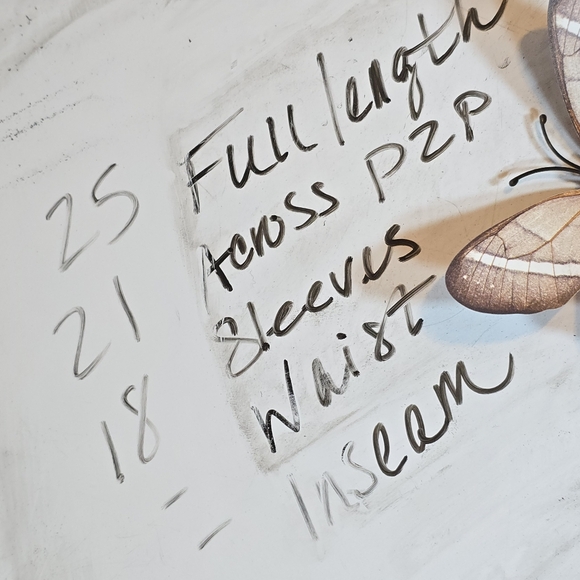 25 Full length
21 Across P2P
18 Sleeves
- Waist
- Inseam